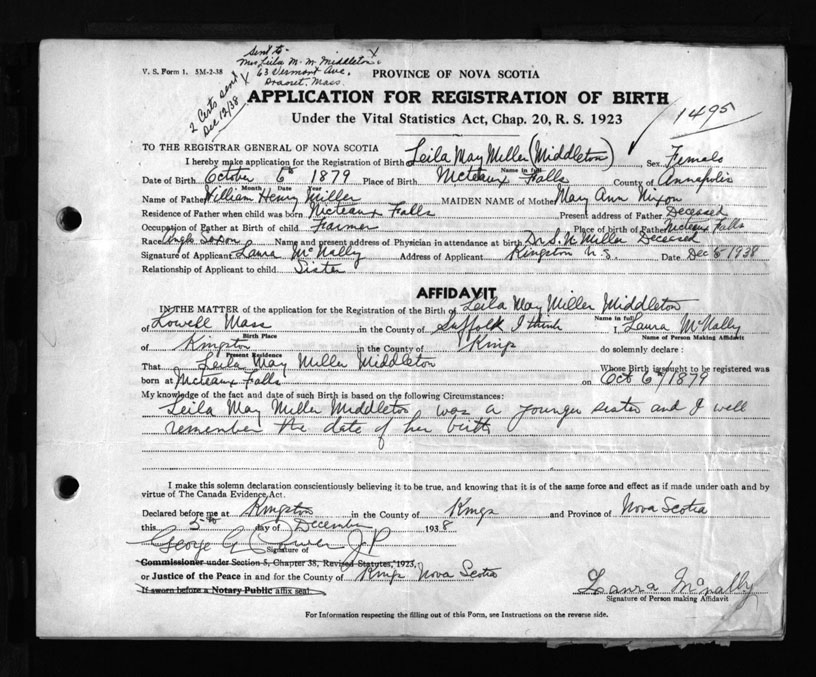 Sent to-
Mrs Leila M. M. Middleton
63 Vermont Ave.
Dracut, Mass.
2 Certs sent
Dec 12/38
V. S. Form 1. 5M-2-38
PROVINCE OF NOVA SCOTIA
APPLICATION FOR REGISTRATION OF BIRTH
Under the Vital Statistics Act, Chap. 20, R. S. 1923
1495
TO THE REGISTRAR GENERAL OF NOVA SCOTIA
I hereby make application for the Registration of Birth Leila May Miller (Middleton) Sex Female
Name in full
Date of Birth October 6th 1879 Place of Birth Nicteaux Falls County of Annapolis
Month Date Year
Name of Father William Henry Miller MAIDEN NAME of Mother Mary Ann Nixon
Residence of Father when child was born Nicteaux Falls Present address of Father Deceased
Occupation of Father at Birth of child Farmer Place of birth of Father Nicteaux Falls
Race Anglo Saxon Name and present address of Physician in attendance at birth Dr S. N. Miller Deceased
Signature of Applicant Laura McNally Address of Applicant Kingston N.S. Date Dec 5 1938
Relationship of Applicant to child Sister
AFFIDAVIT
IN THE MATTER of the application for the Registration of the Birth of Leila May Miller Middleton
Name in full
of Lowell Mass in the County of Suffolk I think I, Laura McNally
Birth Place Name of Person Making Affidavit
of Kingston in the County of Kings do solemnly declare :
Present Residence
That Leila May Miller Middleton Whose Birth is sought to be registered was
born at Nicteaux Falls on Oct 6th/1879
My knowledge of the fact and date of such Birth is based on the following Circumstances:
Leila May Miller Middleton was a younger sister and I well
remember the date of her birth
I make this solemn declaration conscientiously believing it to be true, and knowing that it is of the same force and effect as if made under oath and by
virtue of The Canada Evidence Act.
Declared before me at Kingston in the County of Kings and Province of Nova Scotia
this 5th day of December 1938
George G. J P
Signature of
Commissioner under Section 5, Chapter 38, Revised Statutes, 1923,
or Justice of the Peace in and for the County of Kings Nova Scotia
If sworn before a Notary Public affix seal.
Laura McNally
Signature of Person making Affidavit
For Information respecting the filling out of this Form, see Instructions on the reverse side.